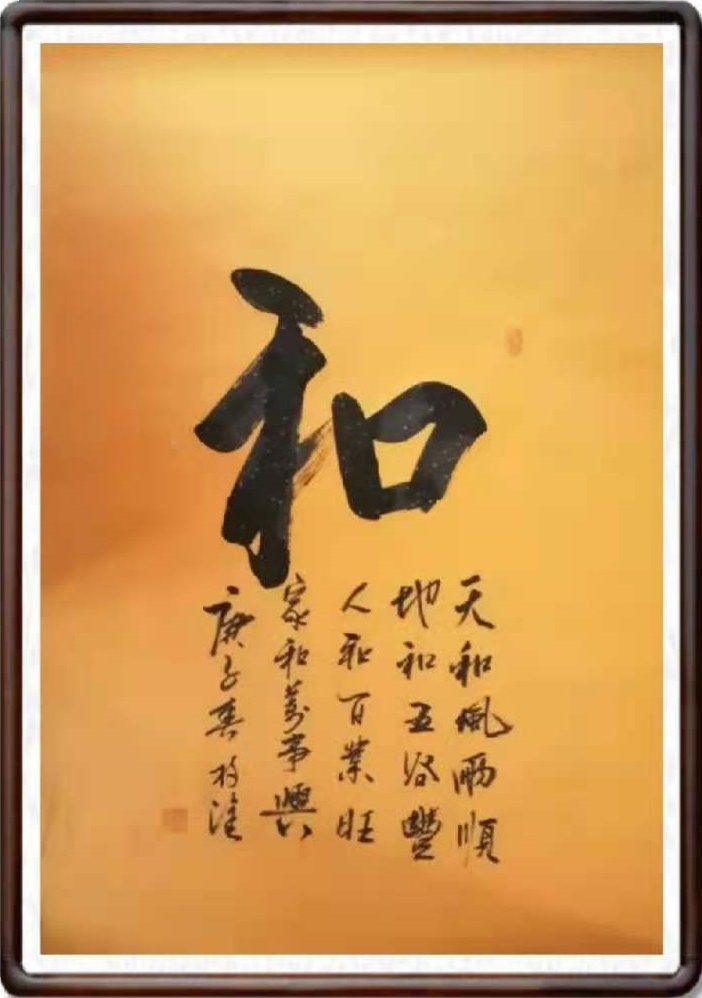 和
天和風雨順
地和五谷豐
人和百業旺
家和萬事興
庚子春